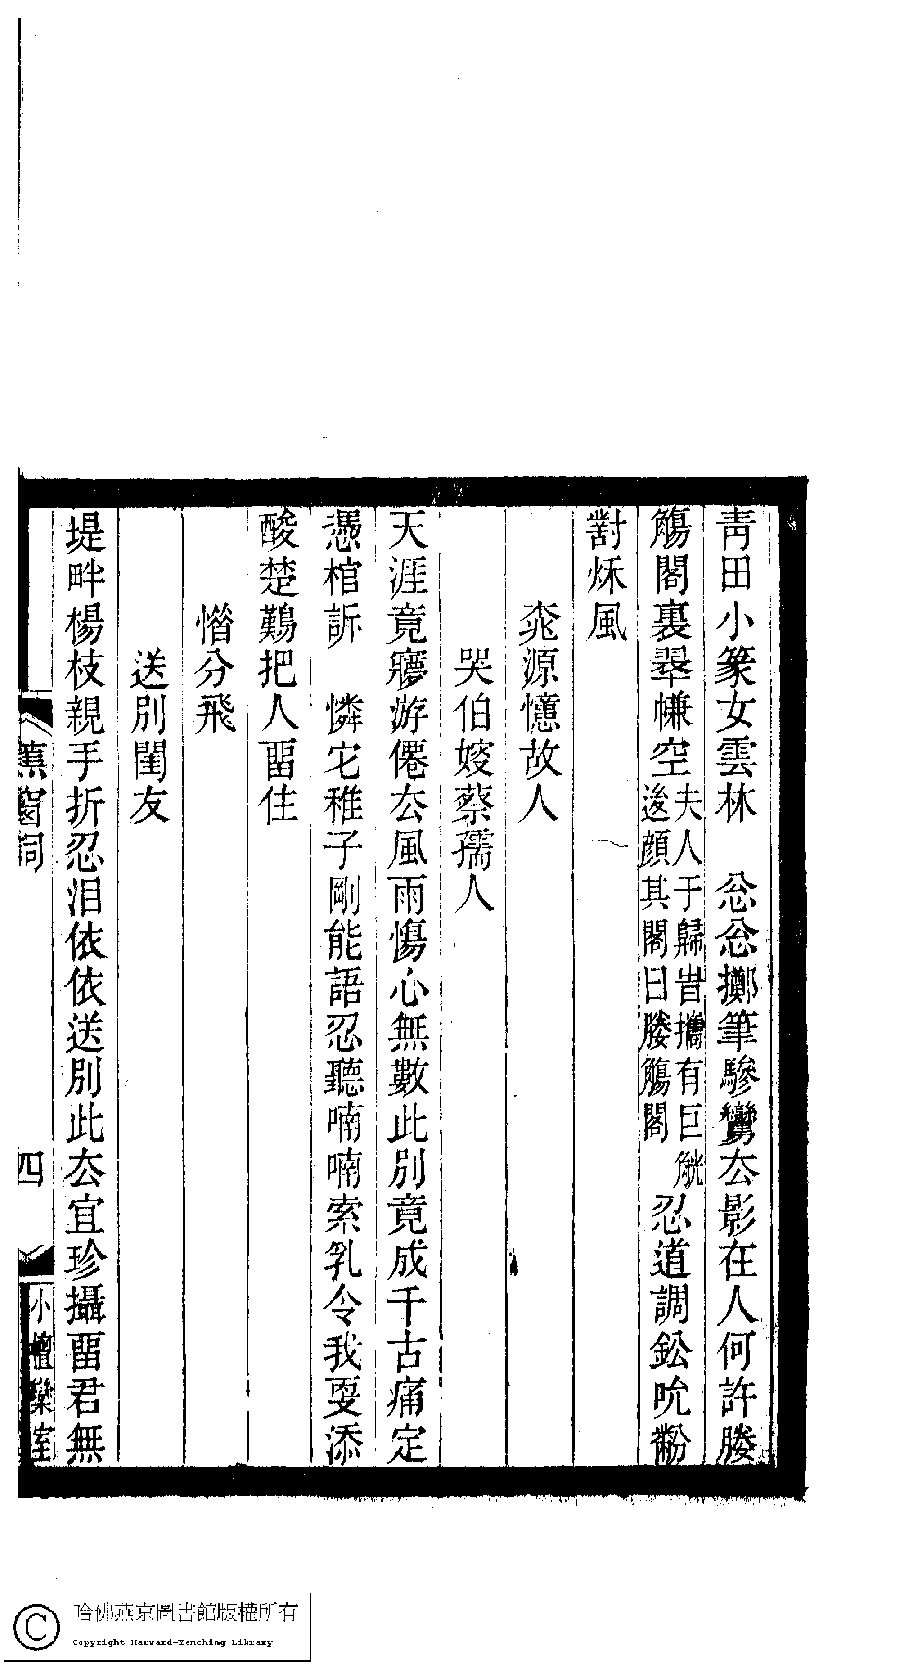 青田小篆女雲林　忩忩擲筆驂鸞厺影在人何許媵
觴閣裏翠㡘空夫人于歸旹攜有巨觥
逡顏其閣曰媵觴閣忍道調鈆吮黺
對秌風
桒源憶故人
哭伯姣蔡孺人
天涯竟㝱游僊厺風雨慯心無數此別竟成千古痛定
憑棺訴　憐它稚子剛能語忍聽喃喃索乳令我㪅添
酸楚鷄把人畱住
惜分飛
送別閨友
堤畔楊枝親手折忍泪依依送別此厺宜珍攝畱君無
蕉窗詞
四
小檀欒室
哈佛燕京圖書館版權所有
Copyright Harvard-Yenching Library